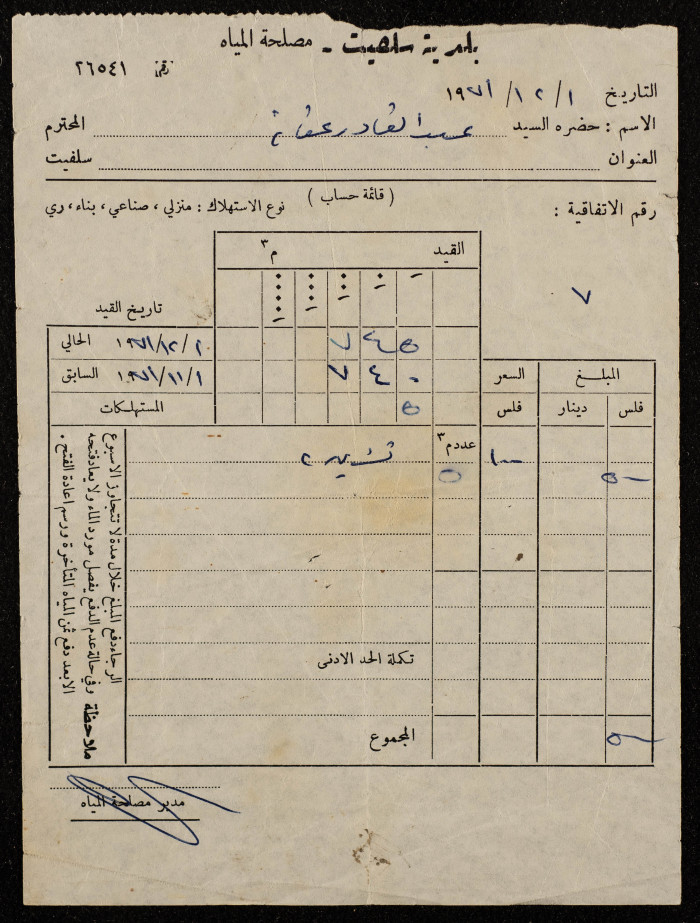 بلدية سلفيت - مصلحة المياه
رقم ٢٦٥٤١
التاريخ ١/١٢/١٩٧١
الاسم : حضرة السيد عبد القادر عفانة المحترم
العنوان سلفيت
( قائمة حساب )
رقم الاتفاقية : نوع الاستهلاك : منزلي ، صناعي ، بناء ، ري
٧
القيد م٣
تاريخ القيد
٧٤٥ ١٩٧١/١٢/١ الحالي
٧٤٠ ١٩٧١/١١/١ السابق
٥ المستهلكات
المبلغ السعر
فلس دينار فلس
عدد م٣
تشرين ٢ ١٠٠
٥ ٥٠٠
تكملة الحد الادنى
المجموع ٥٠٠
ملاحظة
الرجاء دفع المبلغ خلال مدة لا تتجاوز الاسبوع
وفي حالة عدم الدفع يفصل مورد الماء ولا يعاد فتحه
الا بعد دفع ثمن المياه المتأخرة ورسم اعادة الفتح .
مدير مصلحة المياه